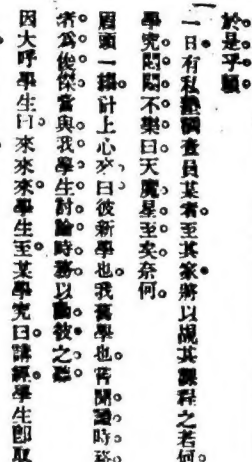 於是乎願
一日有私塾調查員某者至其家將以覘其課程之若何
學究悶悶不樂曰天魔星至矣奈何
眉頭一縐計上心來曰彼新學也我舊學也嘗聞識時務
者爲俊傑當與我學生討論時務以動彼之聽
因大呼學生曰來來來學生至某學究曰講經學生卽取